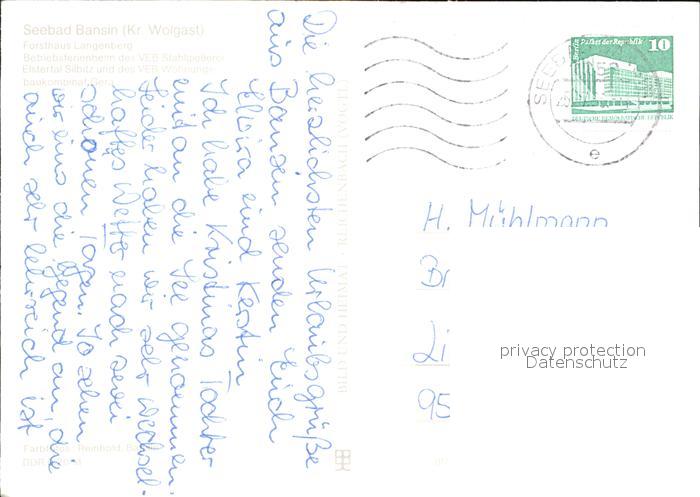 Seebad Bansin (Kr. Wolgast)
Forsthaus Langenberg
Betriebsferienheim des VEB Stahlgießerei
Elstertal Silbitz und des VEB Wohnungs-
baukombinat Gera
Die herzlichsten Urlaubsgrüße
aus Bansin senden Euch
und Kerstin
Ich habe Kristinas Tochter
mit an die See genommen.
Leider haben wir sehr wechsel-
haftes Wetter nach zwei
schönen Tagen. So sehen
wir uns die Gegend an, die
auch sehr lehrreich ist
BILD UND HEIMAT · REICHENBACH
Palast der Republik
10
DEUTSCHE DEMOKRATISCHE REPUBLIK
SEEBAD
e
H. Mühlmann
Br
Li
95
privacy protection
Datenschutz
Farbfotos: Reinhold,
DDR